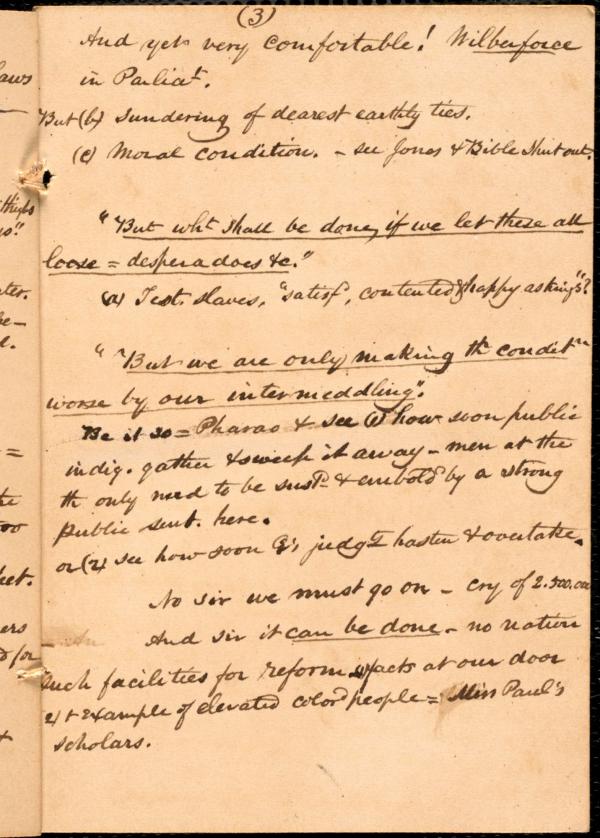 (3)
And yet very comfortable! Wilberforce
in Parliat.
But (b) Sundering of dearest earthly ties.
(c) Moral condition. – see Jones & Bible Shut out.
"But wht shall be done, if we let these all
loose = desperadoes &c."
(a) Test. slaves, "satisfd, contented & happy as kings"?
"But we are only making th condit n
worse by our intermeddling".
Be it so = Pharao & see (1) how soon public
indig. gather & sweep it away – men at the
th only need to be sustd & embold by a strong
public sent. here.
or (2) see how soon G's judgts hasten & overtake.
No sir we must go on – cry of 2.500.000
And sir it can be done – no nation
such facilities for reform facts at our door
2) + Example of elevated colord people = Miss Paul's
scholars.
laws
things
ater.
be–
d.
=
the
too
eet.
ers
d for